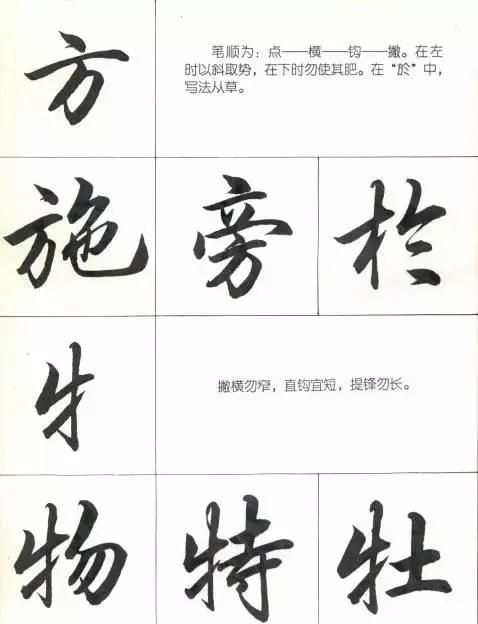 方
笔顺为：点——横——钩——撇。在左
时以斜取势，在下时勿使其肥。在“於”中，
写法从草。
施 旁 於
牜
撇横勿窄，直钩宜短，提锋勿长。
物 特 牡